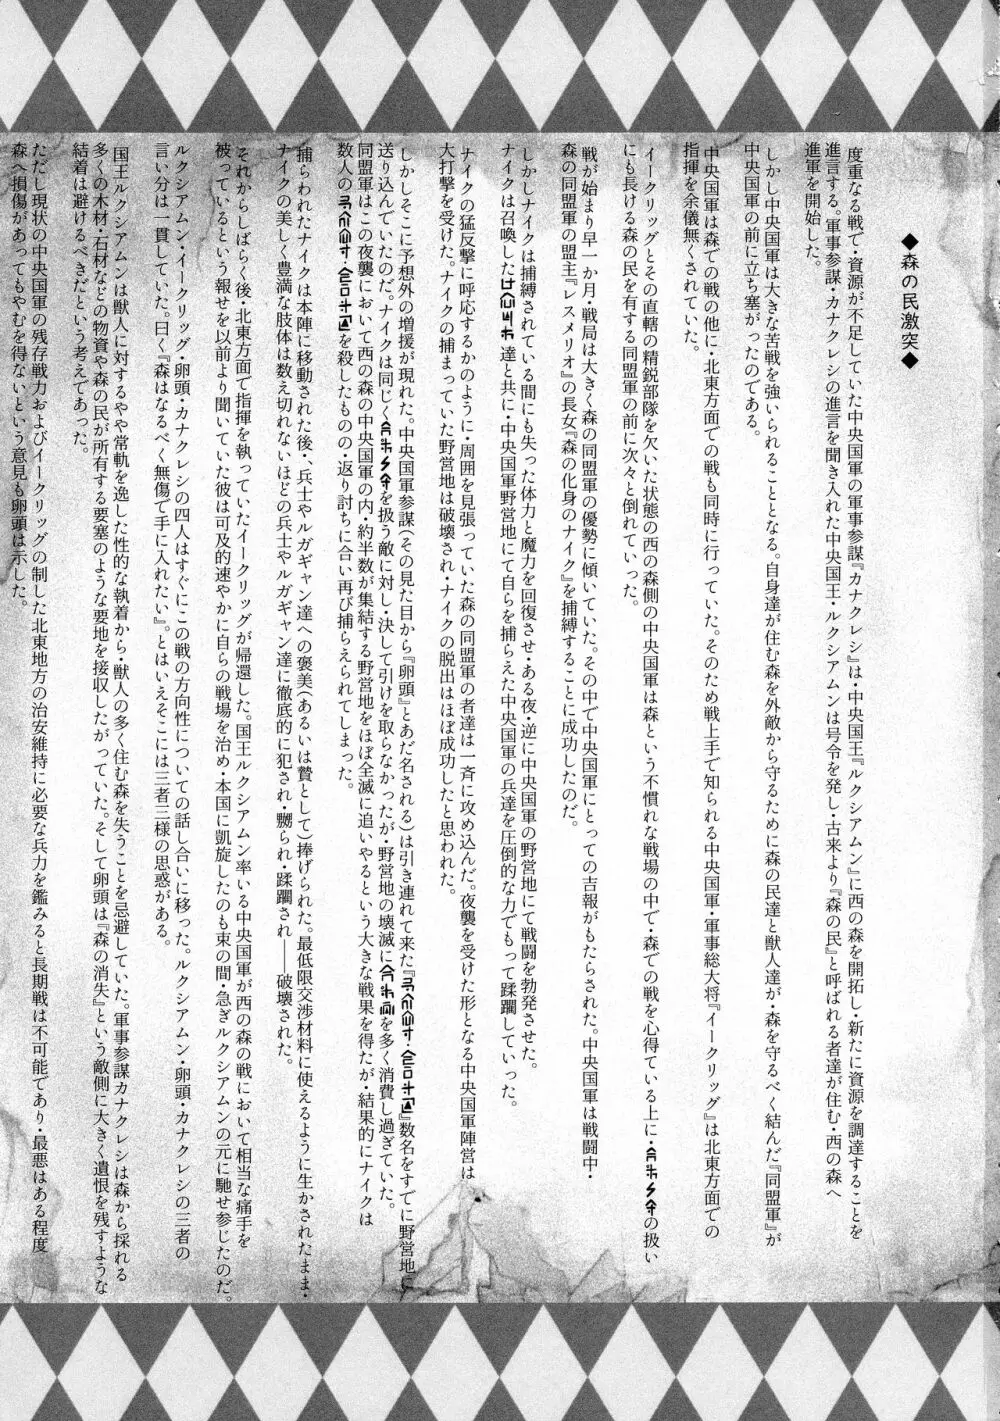 ◆森の民激突◆
度重なる戦で・資源が不足していた中央国軍の軍事参謀『カナクレシ』は・中央国王『ルクシアムン』に西の森を開拓し・新たに資源を調達することを
進言する。軍事参謀・カナクレシの進言を聞き入れた中央国王・ルクシアムンは号令を発し・古来より『森の民』と呼ばれる者達が住む・西の森へ
進軍を開始した。
しかし中央国軍は大きな苦戦を強いられることとなる。自身達が住む森を外敵から守るために森の民達と獣人達が・森を守るべく結んだ『同盟軍』が
中央国軍の前に立ち塞がったのである。
中央国軍は森での戦の他に・北東方面での戦も同時に行っていた。そのため戦上手で知られる中央国軍・軍事総大将『イークリッグ』は北東方面での
指揮を余儀無くされていた。
イークリッグとその直轄の精鋭部隊を欠いた状態の西の森側の中央国軍は森という不慣れな戦場の中で・森での戦を心得ている上に・の扱い
にも長ける森の民を有する同盟軍の前に次々と倒れていった。
戦が始まり早一か月・戦局は大きく森の同盟軍の優勢に傾いていた。その中で中央国軍にとっての吉報がもたらされた。中央国軍は戦闘中・
森の同盟軍の盟主『レスメリオ』の長女『森の化身のナイク』を捕縛することに成功したのだ。
しかしナイクは捕縛されている間にも失った体力と魔力を回復させ・ある夜・逆に中央国軍の野営地にて戦闘を勃発させた。
ナイクは召喚した達と共に・中央国軍野営地にて自らを捕らえた中央国軍の兵達を圧倒的な力でもって蹂躙していった。
ナイクの猛反撃に呼応するかのように・周囲を見張っていた森の同盟軍の者達は一斉に攻め込んだ。夜襲を受けた形となる中央国軍陣営は
大打撃を受けた。ナイクの捕まっていた野営地は破壊され・ナイクの脱出はほぼ成功したと思われた。
しかしそこに予想外の増援が現れた。中央国軍参謀(その見た目から『卵頭』とあだ名される)は引き連れて来た『・』数名をすでに野営地に
送り込んでいたのだ。ナイクは同じくを扱う敵に対し・決して引けを取らなかったが・野営地の壊滅にを多く消費し過ぎていた。
同盟軍はこの夜襲において西の森の中央国軍の内・約半数が集結する野営地をほぼ全滅に追いやるという大きな戦果を得たが・結果的にナイクは
数人の・を殺したものの・返り討ちに合い再び捕らえられてしまった。
捕らわれたナイクは本陣に移動された後、兵士やルガギャン達への褒美(あるいは贄として)捧げられた。最低限交渉材料に使えるように生かされたまま・
ナイクの美しく豊満な肢体は数え切れないほどの兵士やルガギャン達に徹底的に犯され・嬲られ・蹂躙され――破壊された。
それからしばらく後・北東方面で指揮を執っていたイークリッグが帰還した。国王ルクシアムン率いる中央国軍が西の森の戦において相当な痛手を
被っているという報せを以前より聞いていた彼は可及的速やかに自らの戦場を治め・本国に凱旋したのも束の間・急ぎルクシアムンの元に馳せ参じたのだ。
ルクシアムン・イークリッグ・卵頭・カナクレシの四人はすぐにこの戦の方向性についての話し合いに移った。ルクシアムン・卵頭・カナクレシの三者の
言い分は一貫していた。曰く『森はなるべく無傷で手に入れたい』。とはいえそこには三者三様の思惑がある。
国王ルクシアムンは獣人に対するやや常軌を逸した性的な執着から・獣人の多く住む森を失うことを忌避していた。軍事参謀カナクレシは森から採れる
多くの木材・石材などの物資や森の民が所有する要塞のような要地を接収したがっていた。そして卵頭は『森の消失』という敵側に大きく遺恨を残すような
結着は避けるべきだという考えであった。
ただし現状の中央国軍の残存戦力およびイークリッグの制した北東地方の治安維持に必要な兵力を鑑みると長期戦は不可能であり・最悪はある程度
森へ損傷があってもやむを得ないという意見も卵頭は示した。